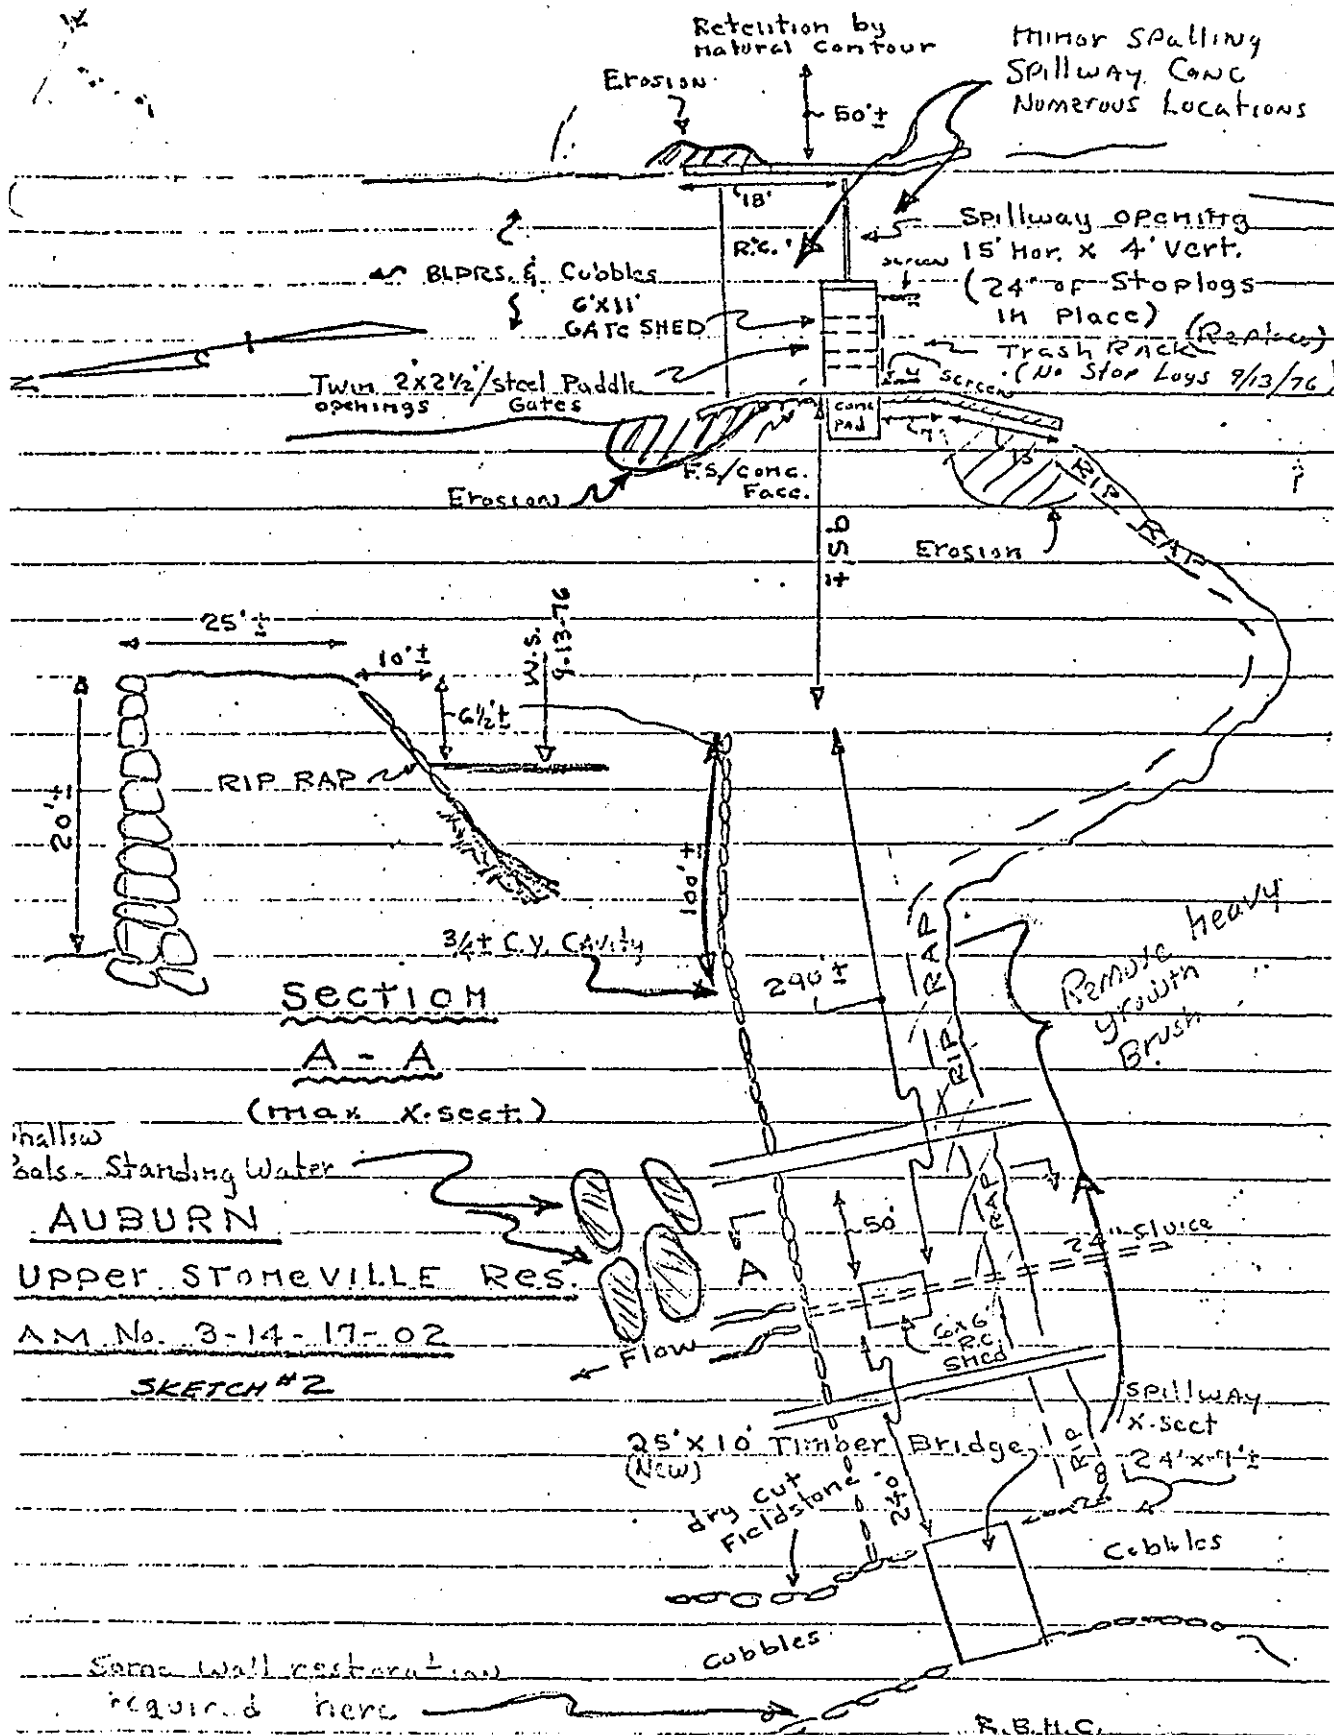 Retention by
natural contour
Minor Spalling
Spillway Conc
Numerous Locations
Erosion
~ 50'±
18'
R.C.
Spillway opening
15' Hor. x 4' Vert.
(24" of Stoplogs
in place) (Replace)
screen
BLDRS. & Cubbles
6'x11'
GATE SHED
Trash Rack
(No Stop Logs 9/13/76)
Twin 2'x2½'/steel Puddle
openings Gates
screen
Conc
PAD
7'
15
RIP RAP
F.S./Conc.
Face.
Erosion
Erosion
95'±
25'±
10'±
W.S.
9-13-76
6½'±
RIP RAP
20'±
100'±
3/4± C.Y. Cavity
290'±
Remove heavy
growth
Brush
RIP RAP
SECTION
A - A
(max x-sect.)
hallow
ools - Standing Water
AUBURN
Upper STONEVILLE Res.
AM No. 3-14-17-02
SKETCH #2
RAP
A
A
50'
24" Sluice
6x6
R.C.
Shed
Flow
Spillway
x-sect
24'x7'±
RIP
25'x10' Timber Bridge
(New)
240'
dry cut
Fieldstone
28
Cobbles
Cubbles
Some wall restoration
required here
R.B.H.C.